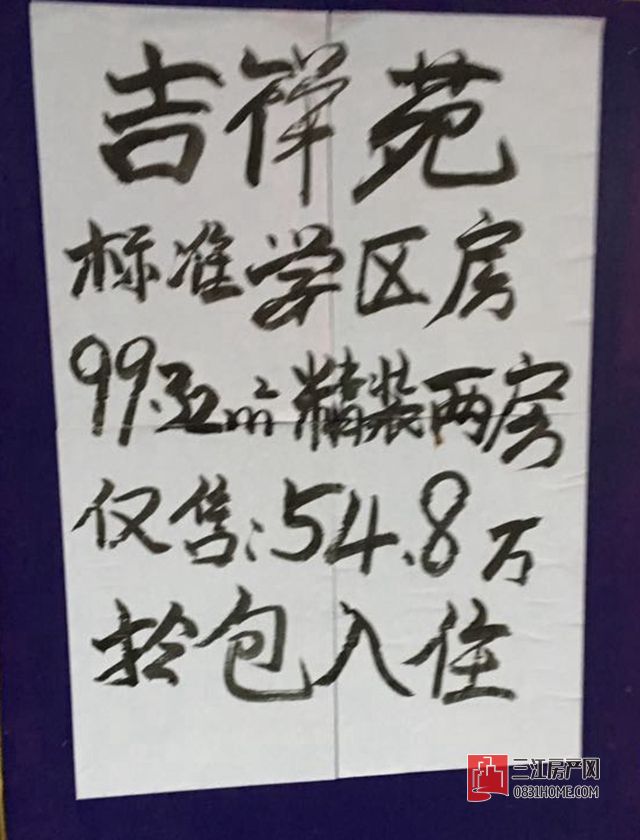 吉祥苑
标准学区房
99.五m²精装两房
仅售:54.8万
拎包入住
三江房产网
0831HOME.COM